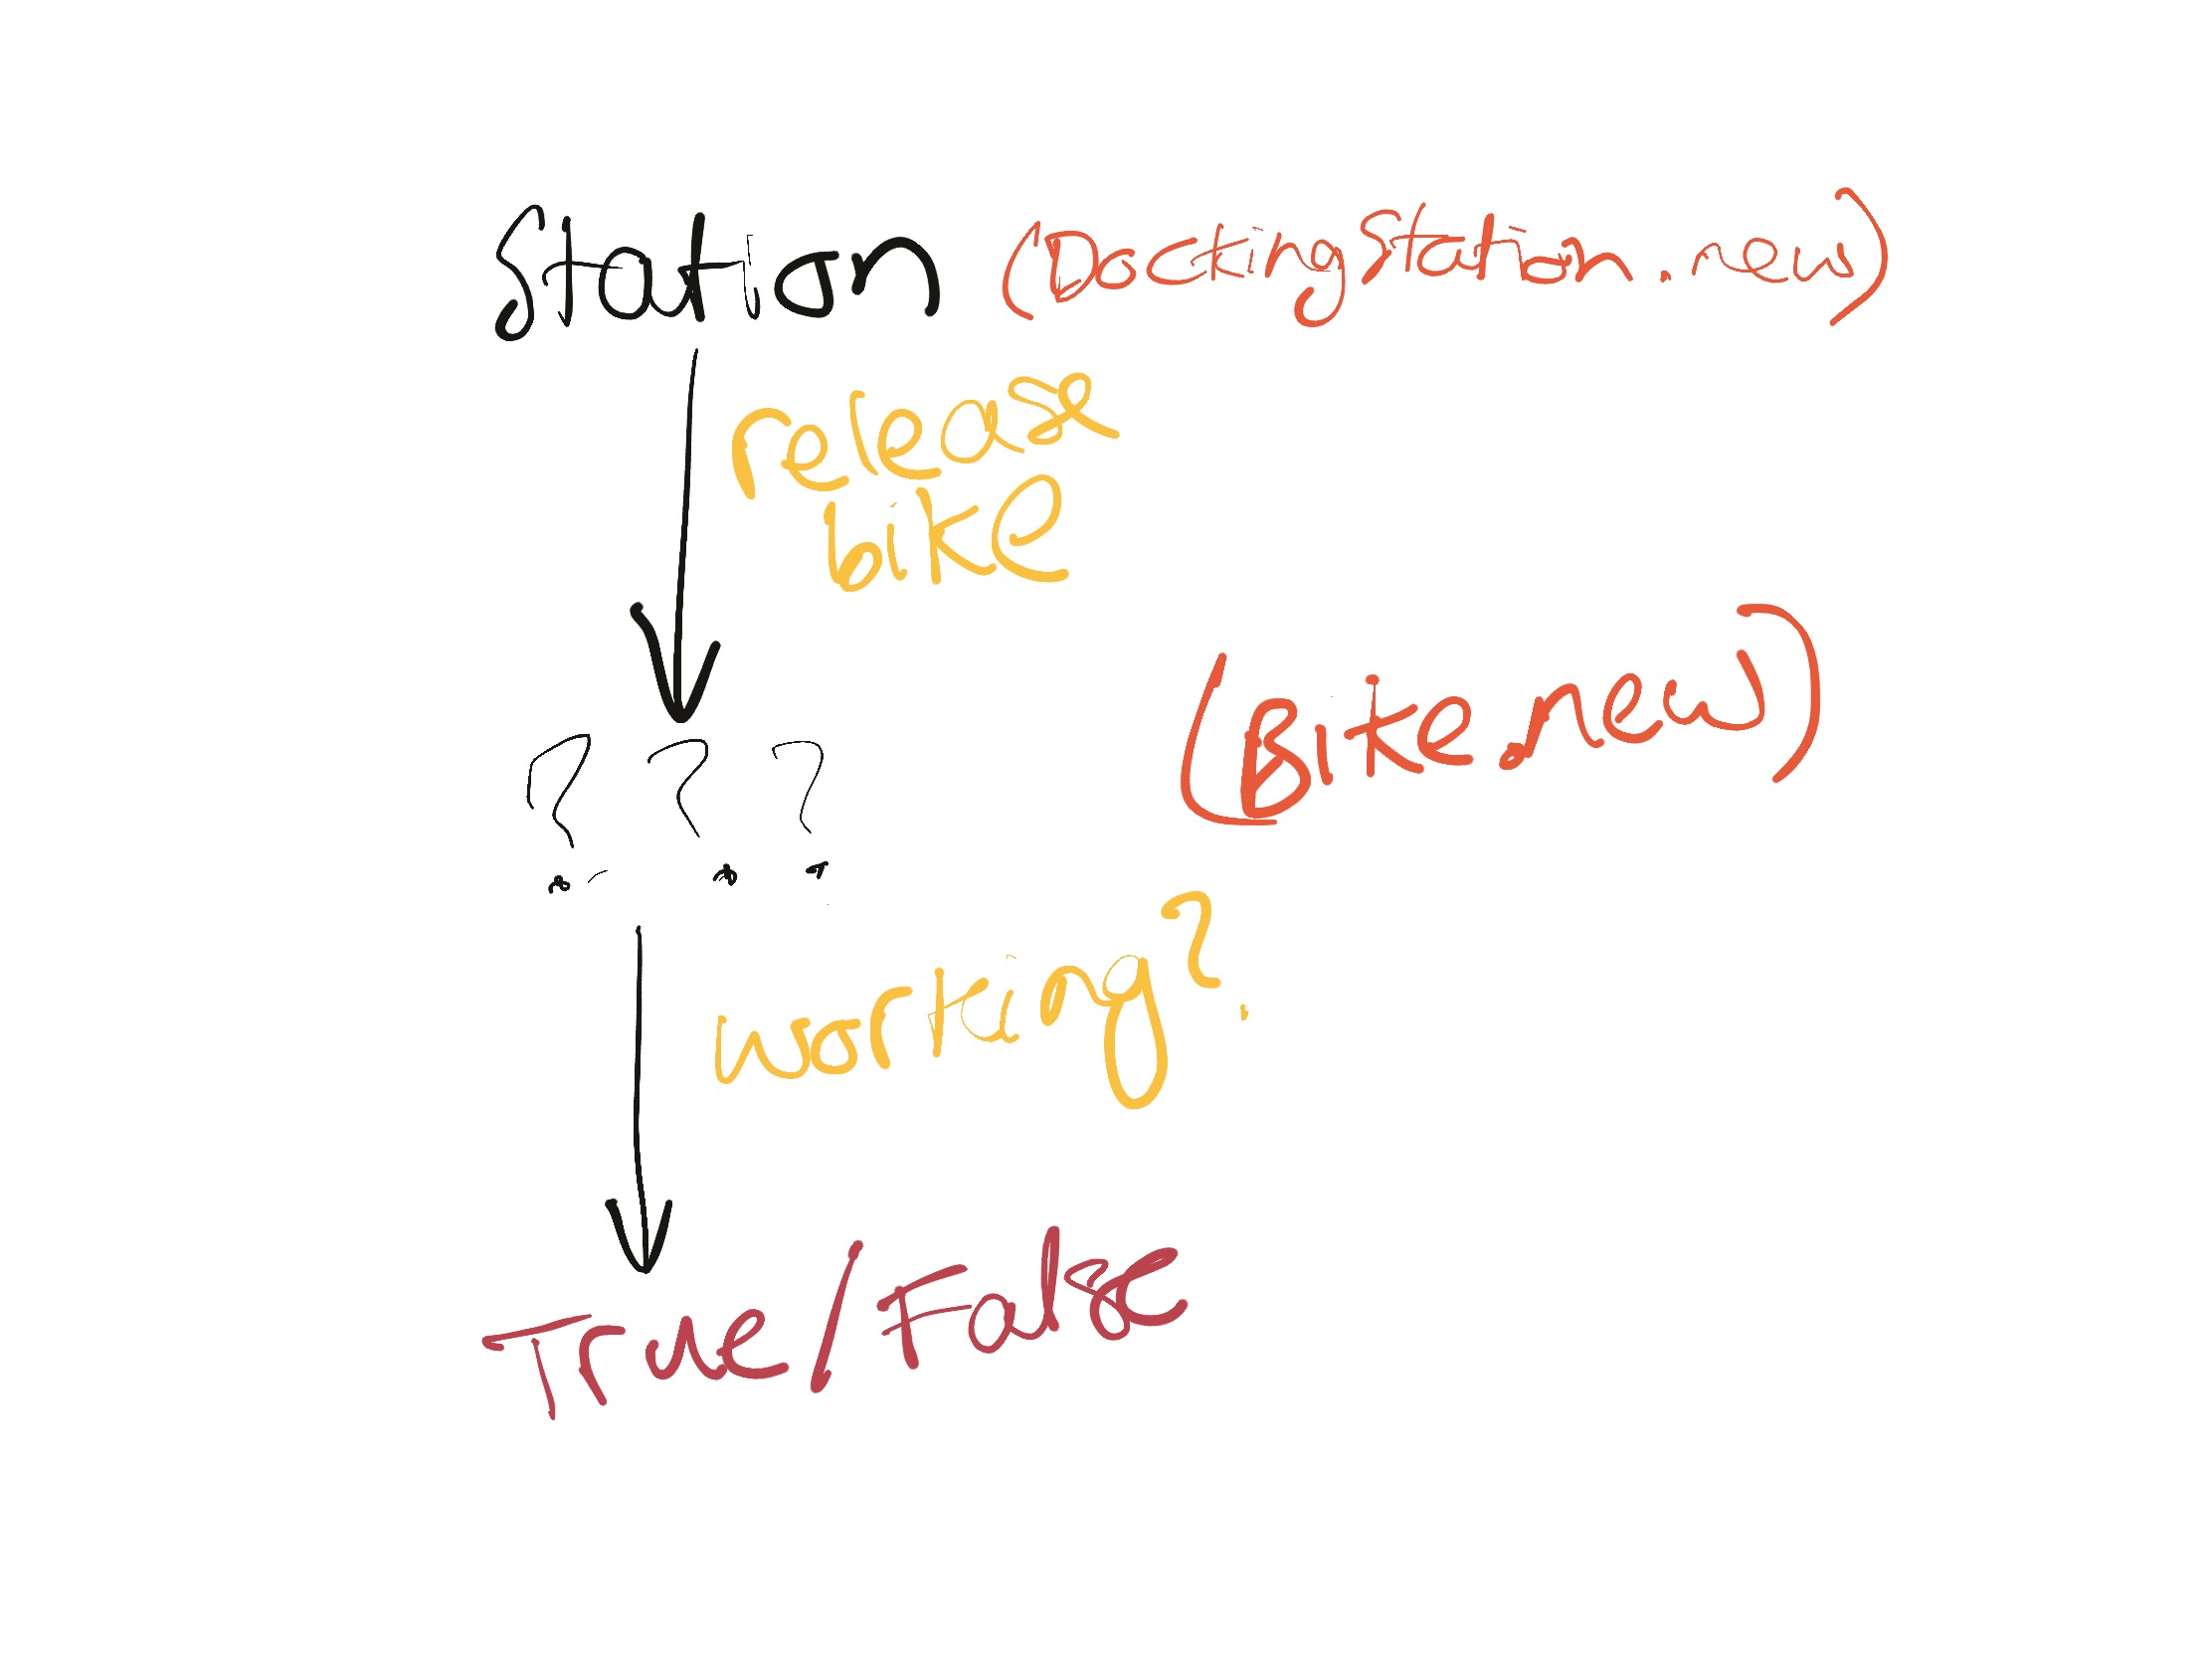 Station (DockingStation.new)
release
bike
(Bike.new)
? ? ?
working?
True/False